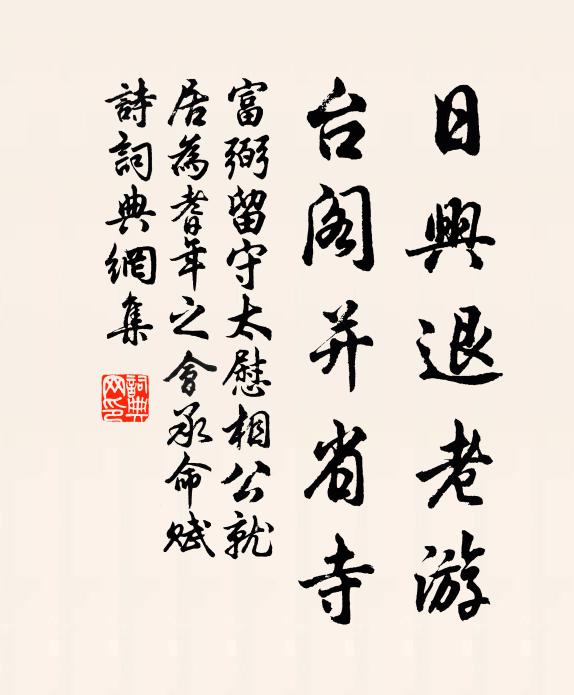 日興退老游
台閣并省寺
富弼留守太慰相公就
居為耆年之會承命賦
詩詞典網集
詞典網印